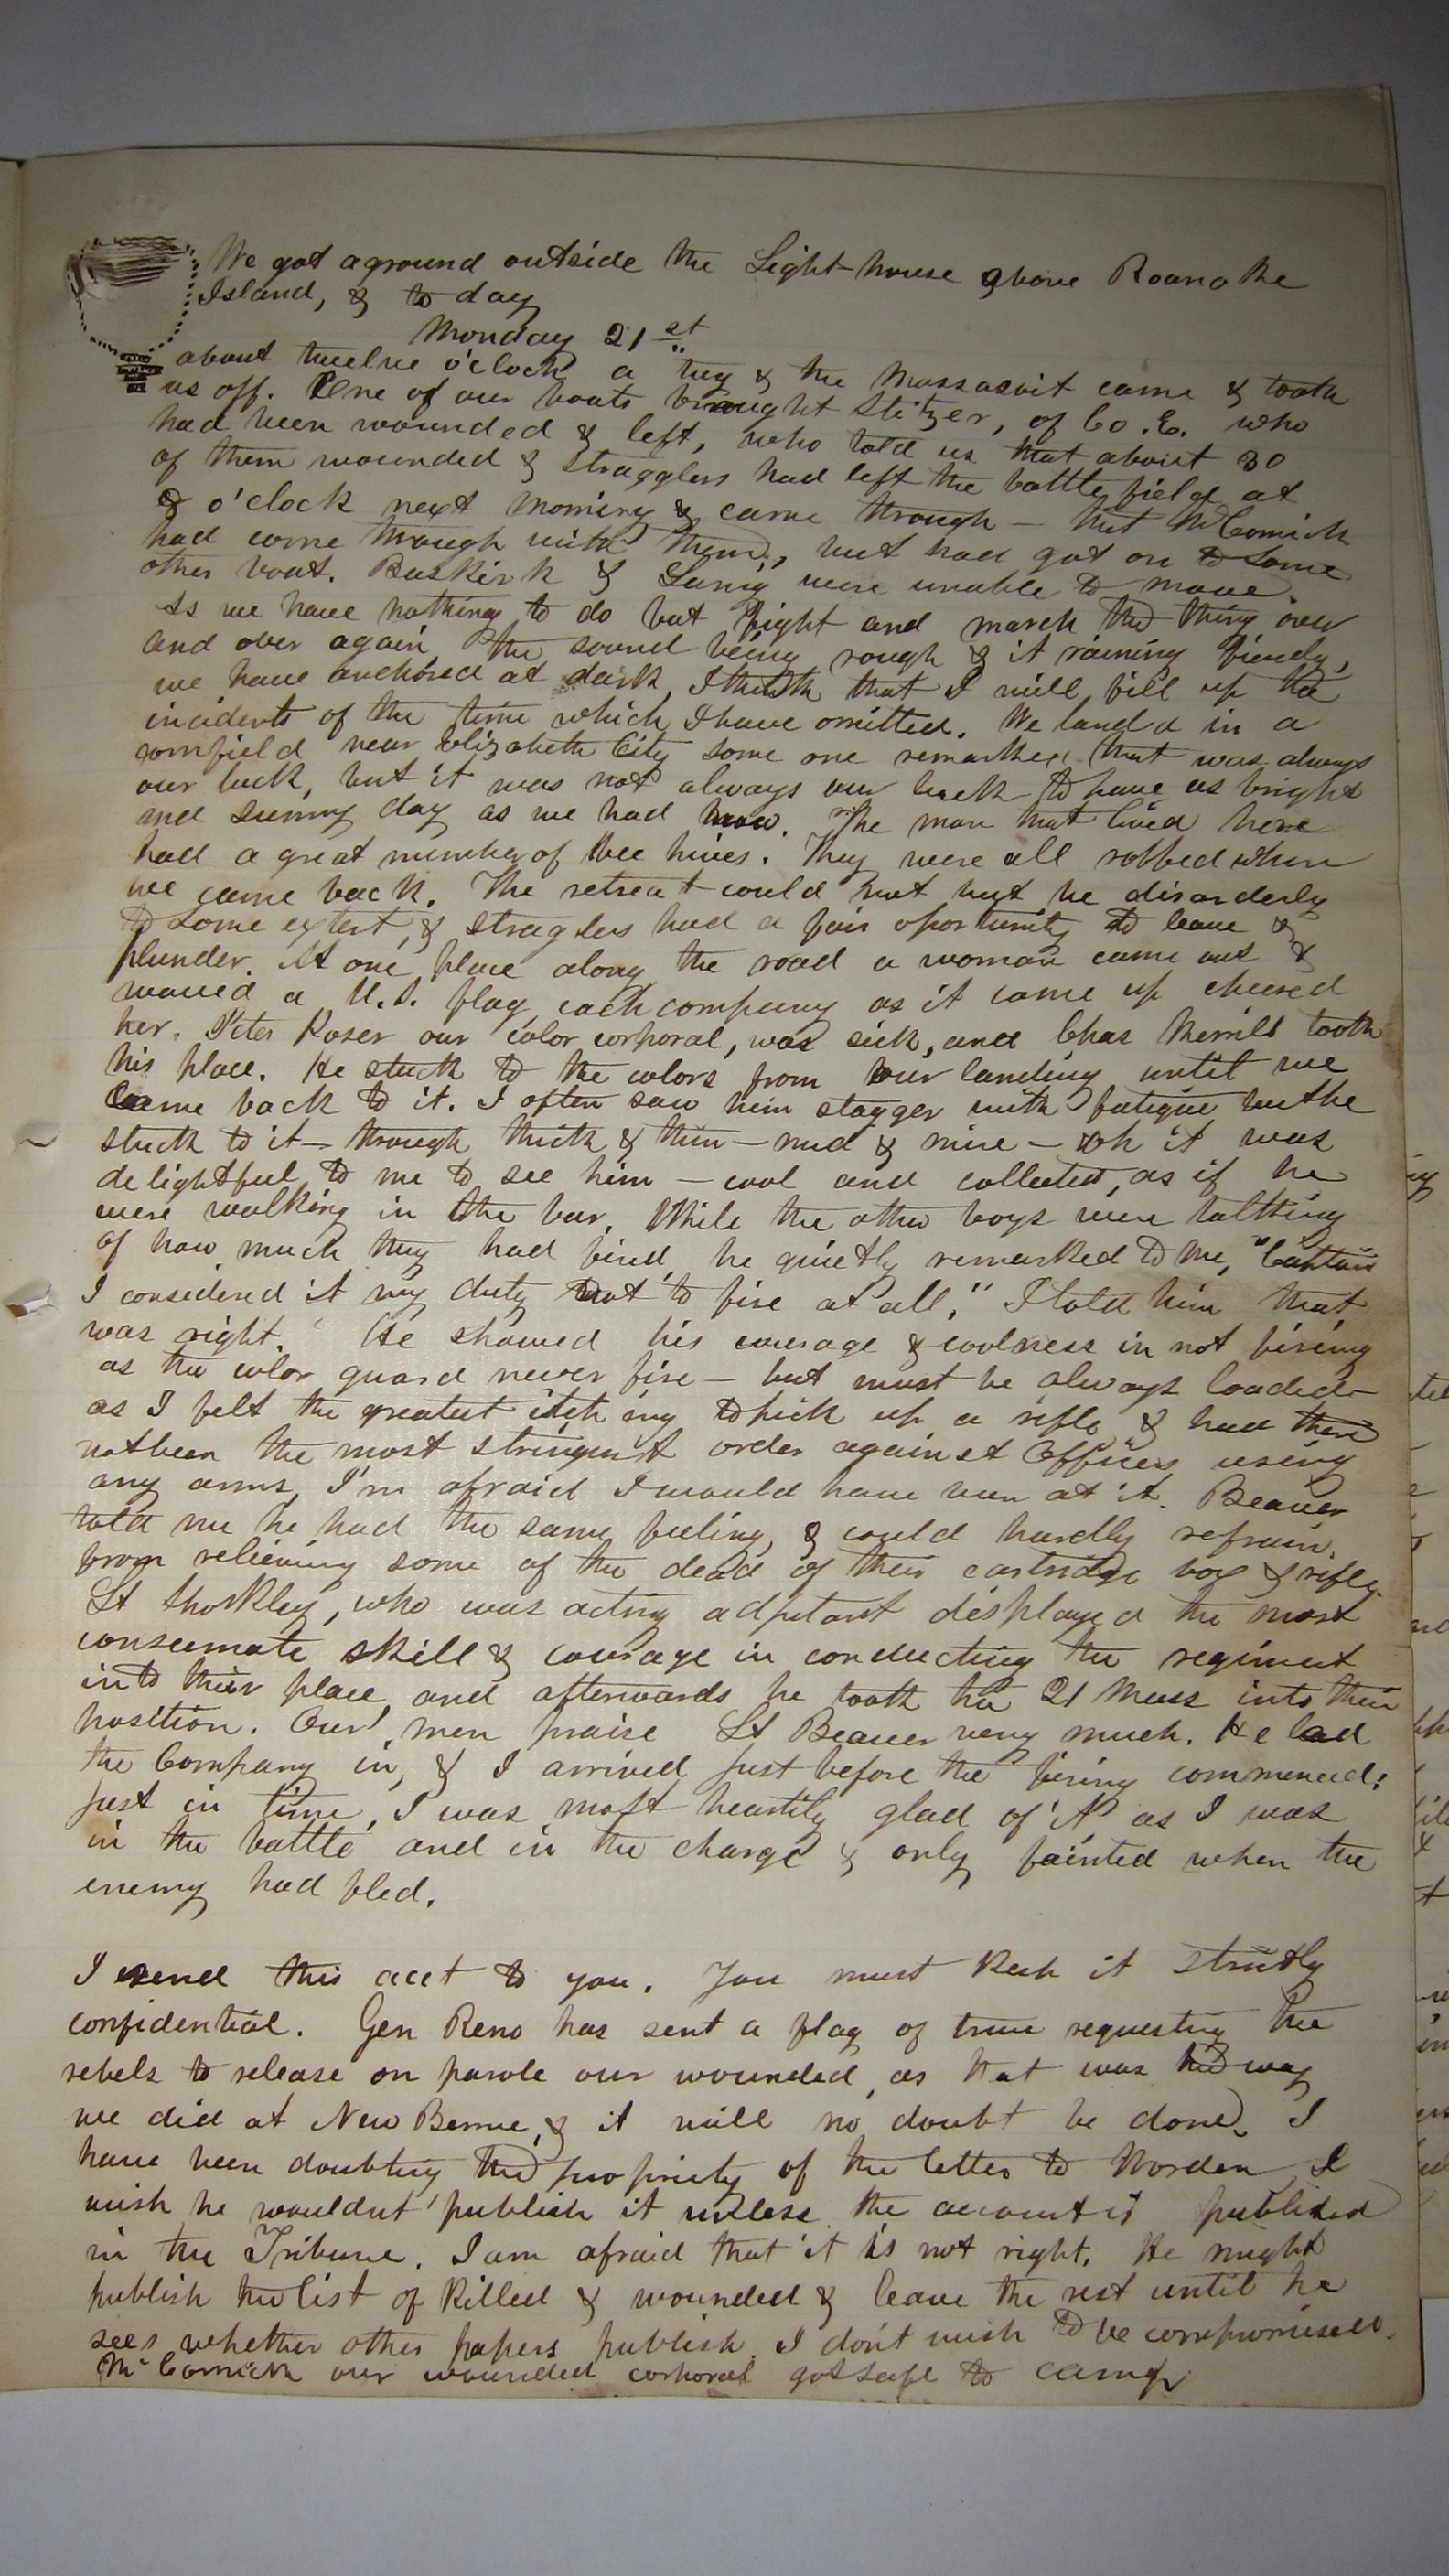 We got aground outside the Light-house above Roanoke
Island, & to day
Monday 21st
about twelve o'clock a tug & the Massasoit came & took
us off. One of our boats brought Stitzer, of Co. E. who
had been wounded & left, who told us that about 30
of them wounded & stragglers had left the battle field at
o'clock next morning & came through — that McComick
had come through with them, but had got on to some
other boat. Buskirk & were unable to move.
As we have nothing to do but fight and march the thing over
and over again, the sound being rough & it raining
we have anchored at dark, I think that I will fill up the
incidents of the time which I have omitted. We landed in a
cornfield near Elizabeth City some one remarked that was always
our luck, but it was not always our luck to have as bright
and sunny day as we had now. The man that lived here
had a great number of bee hives. They were all robbed when
we came back. The retreat could not but be disorderly
to some extent, & straglers had a fair oportunity to leave &
plunder. At one place along the road a woman came out &
waved a U.S. flag, each company as it came up cheered
her. Peter Koser our color corporal, was sick, and Chas Merrills took
his place. He stuck to the colors from our landing until we
came back to it. I often saw him stagger with fatigue but he
stuck to it — through thick & thin — mud & mire — oh it was
delightful to me to see him — cool and collected, as if he
were walking in the bar. While the other boys were talking
of how much they had fired he quietly remarked to me, "Captain
I considered it my duty not to fire at all," I told him that
was right. He showed his courage & coolness in not firing
as the color guard never fire — but must be always loaded—
as I felt the greatest itching to pick up a rifle, & had there
not been the most stringent order against Officers using
any arms, I'm afraid I would have been at it. Beaver
told me he had the same feeling, & could hardly refrain
from relieving some of the dead of their cartridge box & rifle.
Lt Shorkley, who was acting adjutant displayed the most
consumate skill & courage in conducting the regiment
into their place, and afterwards he took the 21 Mass into their
position. Our men praise Lt Beaver very much. He led
the Company in, & I arrived just before the firing commenced:
just in time, I was most heartily glad of it as I was
in the battle and in the charge & only fainted when the
enemy had fled.
I send this acct to you. You must keep it strictly
confidential. Gen Reno has sent a flag of truce requesting the
rebels to release on parole our wounded, as that was the way
we did at New Berne, & it will no doubt be done. I
have been doubting the propriety of the letter to Worden, I
wish he wouldnt publish it unless the account is published
in the Tribune. I am afraid that it is not right. He might
publish the list of killed & wounded & leave the rest until he
sees whether other papers publish. I dont wish to be compromised.
McComick our wounded corporal got safe to camp